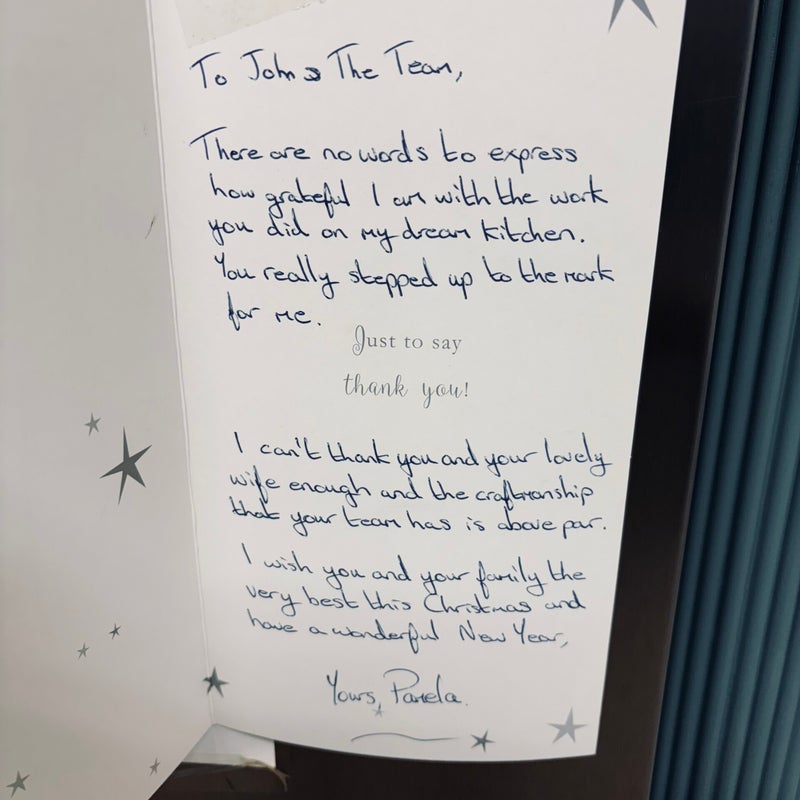 To John & The Team,
There are no words to express
how grateful I am with the work
you did on my dream kitchen.
You really stepped up to the mark
for me.
Just to say
thank you!
I can't thank you and your lovely
wife enough and the craftmanship
that your team has is above par.
I wish you and your family the
very best this Christmas and
have a wonderful New Year,
Yours, Pamela.